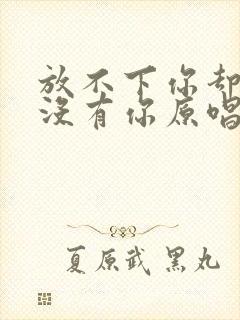 放不下你却
没有你原唱
夏原武 黑丸